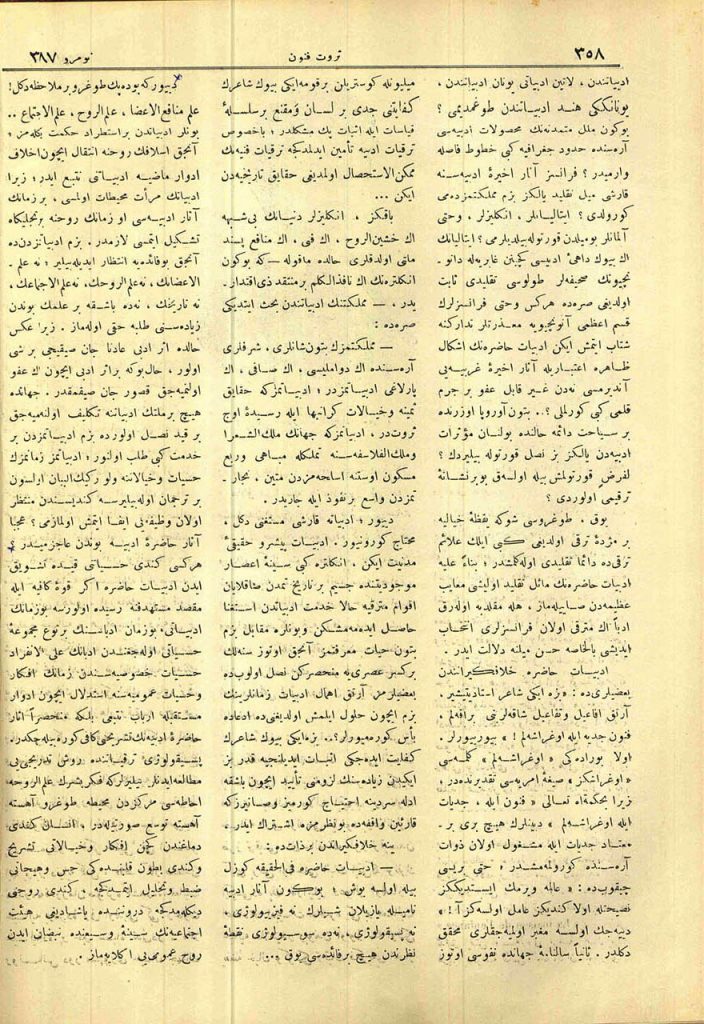 ٣٥٨
ثروت فنون
نومرو ٣٨٧
ادبیاتندن ، لاتین ادبیاتی یونان ادبیاتندن ،
یونانكی هند ادبیاتندن طوغمدیمی ؟
بوكون ملل متمدنه‌نك محصولات ادبیه‌سی
آره‌سنده حدود جغرافیه كبی خطوط فاصله
وارمیدر ؟ فرانسز آثار اخیرۀ ادبیه‌سنه
قارشی میل تقلید یالكز بزم مملكتمزده‌می
كورولدی ؟ ایتالیانلر ، انكلیزلر ، وحتی
آلمانلر بومیلدن قورتوله‌بیلدیلرمی ؟ ایتالیانك
اك بیوك داهئ ادبیسی كچنلن غابریه‌له دانو ـ
نچیونك صحیفه‌لر طولوسی تقلیدی ثابت
اولدیغی صره‌ده هركس وحتی فرانسزلرك
قسم اعظمی آنونچیویه معذرتلر تداركنه
شتاب ایتمش ایكن ادبیات حاضره‌نك اشكال
ظاهره اعتباریله آثار اخیرۀ غربیه‌یی
آندیرمسی نه‌دن غیر قابل عفو بر جرم
قلمی كبی كورلملی ؟.. بتون آوروپا اوزرنده
بر سیاحت دائمه حالنده بولنان مؤثرات
ادبیه‌دن یالكز بز نصل قورتوله بیلیردك ؟
لفرض قورتولمش بیله اولسه‌ق بو بر نشانۀ
ترقیمی اولوردی ؟
یوق . طوغروسی شوكه یقظۀ خیالیه
بر مژدۀ ترقی اولدیغی كبی ایلك علائم
ترقی‌ده دائما تقلیدی اوله‌كلمشدر ؛ بناءً علیه
ادبیات حاضره‌نك مائل تقلید اولیشی معایب
عظیمه‌دن صاییله‌ماز ، هله مقلدبه اوله‌رق
ادباً اك مترقی اولان فرانسزلری انتخاب
ایدیشی بالخاصه حسن میلنه دلالت ایدر .
ادبیات حاضره خلافكیرانندن
بعضیلری‌ده : «بزه ایكی شاعر استادیتیشیر .
آرتق افاعیل وتفاعیل شاقه‌لرینی براقه‌لم ،
فنون جدیه ایله اوغراشه‌لم !» بیوریورلر .
اولا بوراده‌كی « اوغراشه‌لم » كلمه‌سی
« اوغراشكز » صیغۀ امریه‌سی تقدیرنده‌در ،
زیرا بحكمةاه تعالی « فنون ایله ، جدیات
ایله اوغراشه‌لم » دینلرك هیچ بری بر ـ
معتاد جدیات ایله مشغول اولان ذوات
آره‌سنده كورولمه‌مشدر ؛ حتی بریسی
چیقوب‌ده : « عالمه ویرمك ایستدیككز
نصیحتله اولا كندیكز عامل اولسه‌كز آ ! »
دییه‌جك اولسه مغبر اولمیه‌جقلری محقق
دكلدر . ثانیاً سالنامۀ جهانده نفوسی اوتوز
میلیونله كوستریلن بر قومه ایكی بیوك شاعرك
كفایتنی جدی بر لسان ومقنع بر سلسلۀ
قیاسات ایله اثبات پك مشكلدر ؛ باخصوص
ترقیات ادبیه تأمین ایدلمدكجه ترقیات فنیه‌نك
ممكن‌الاستحصال اولمدیغی حقایق تاریخیه‌دن
ایكن ...
باقكز ، انكلیزلر دنیانك بی‌شبهه
اك خشین‌الروح ، اك فنی ، اك منافع پسند
ملتی اولدقلری حالده ماقوله ــ كه بوكون
انكلتره‌نك اك نافذالكلم بر منتقد ذی‌اقتدار ـ
یدر ، ــ مملكتنك ادبیاتندن بحث ایتدیكی
صره‌ده :
ــ مملكتمزك بتون شانلری ، شرفلری
آره‌سنده اك دواملیسی ، اك صافی ، اك
پارلاغی ادبیاتمزدر ؛ ادبیاتمزكه حقایق
ثمینه وخیالات كرانبها ایله رسیدۀ اوج
ثروت‌در ، ادبیاتمزكه جهانك ملك‌الشعرا
وملك‌الفلاسفه‌سنه تملكله مباهی وربع
مسكون اوستنه اسلحه‌مزدن متین ، تجار ـ
تمزدن واسع بر نفوذ ایله جاریدر .
دیيور ؛ ادبیاته قارشی مستغنی دكل ،
محتاج كورونیور . ادبیات پیشرو حقیقئ
مدنیت ایكن ، انكلتره كبی سینۀ اعصار
موجودیتنده جسیم بر تاریخ تمدن طاشلایان
اقوام مترقیه حالا خدمت ادبیاتدن استغنا
حاصل ایده‌مه‌مشكن وبونلره مقابل بزم
بتون حیات معرفتمز آنجق اوتوز سنه‌لك
بر كسر عصری‌یه منحصركن نصل اولوب‌ده
بعضیلرمز آرتق اهمال ادبیات زمانلرینك
بزم ایچون حلول ایلمش اولدیغنی‌ده ادعاده
بأس كورمه‌یورلر؟.. بزه ایكی بیوك شاعرك
كفایت ایده‌جكی اثبات ایدیلنجیه قدر بز
ایكیدن زیاده‌سنك لزومنی تأیید ایچون باشقه
ادله سردینه احتیاج كورمیز وصانیرز كه
قارئین واقفه‌ده بو نظرمزه اشتراك ایدر .
ینه خلافكیراندن بر ذات‌ده :
ــ ادبیات حاضره فی‌الحقیقه كوزل
بیله اولسه بوش ؛ بوكون آثار ادبیه
نامیله یازیلان شیلرك نه فیزیولوژی ،
نه پسیقولوژی ، نه‌ده سوسیولوژی نقطۀ
نظرندن هیچ بر فائده‌سی یوق ...
دیيور كه بوده پك طوغرو بر ملاحظه دكل !
علم منافع الاعضا ، علم‌الروح ، علم‌الاجتماع ..
بونلر ادبیاتدن بر استطراد حكمت بكله‌مز ؛
آنجق اسلافك روحنه انتقال ایچون اخلاف
ادوار ماضیه ادبیاتنی تتبع ایدر ؛ زیرا
ادبیاتك مرأت محیطات اولمسی ، بر زمانك
آثار ادبیه‌سی او زمانك روحنه بر تجلیكاه
تشكیل ایتمسی لازمدر . بزم ادبیاتمزدن‌ده
آنجق بو فائده‌یه انتظار ایدیله‌بیلیر ؛ نه علم ـ
الاعضانك ، نه علم‌الروحك ، نه علم‌الاجتماعك ،
نه تاریخك ، نه‌ده باشقه بر علمك بوندن
زیاده‌سنی طلبه حقی اوله‌ماز . زیرا عكس
حالده اثر ادبی عادتا جان صیقیجی بر شی
اولور ، حال بوكه بر اثر ادبی ایچون اك عفو
اولنمیه‌جق قصور جان صیقمقدر . جهانده
هیچ بر ملتك ادبیاتنه تكلیف اولنمیه‌جق
بر قید نصل اولورده بزم ادبیاتمزدن بر
خدمت كبی طلب اولنور ؛ ادبیاتمز زمانمزك
حسیات وخیالاتنه ولو ركیك‌البیان اولسون
بر ترجمان اوله‌بیلیرسه كندیسندن منتظر
اولان وظیفه‌یی ایفا ایتمش اولمازمی ؟ عجبا
آثار حاضرۀ ادبیه بوندن عاجزمیدر ؟
هركسی كندی حسیاتی قیده تشویق
ایدن ادبیات حاضره اكر قوۀ كافیه ایله
مقصد مستهدفنه رسیده اولورسه بو زمانك
ادبیاتی ، بو زمان ادباسنك بر نوع مجموعۀ
حسیاتی اوله‌جغندن ادبانك علی الانفراد
حسیات خصوصیه‌سندن زمانك افكار
وحسیات عمومیه‌سنه استدلال ایچون ادوار
مستقبله ارباب تتبعی بلكه منحصراً آثار
حاضرۀ ادبیه‌نك تشریحنی كافی كوره‌بیله‌جكدر .
پسیقولوژی ترقیاتنده روش تدریجی‌یی
مطالعه ایدنلر بیلیرلر كه فكر بشرك علم‌الروحه
احاطه‌سی مركزدن محیطه طوغرو آهسته
آهسته توسع صورتیله‌در ، انسان كندی
دماغندن كچن افكار وخیالاتی تشریح
وكندی بطون قلبنده‌كی حس وهیجانی
ضبط وتحلیل ایتمدكجه ، كندی روحنی
دیكله‌مدكجه دروننده یاشادیغی هیئت
اجتماعیه‌نك سینۀ وسیعنده نبضان ایدن
روح عمومی‌یی اكلایه‌ماز .